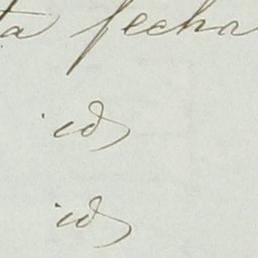 ta fecha
id
id